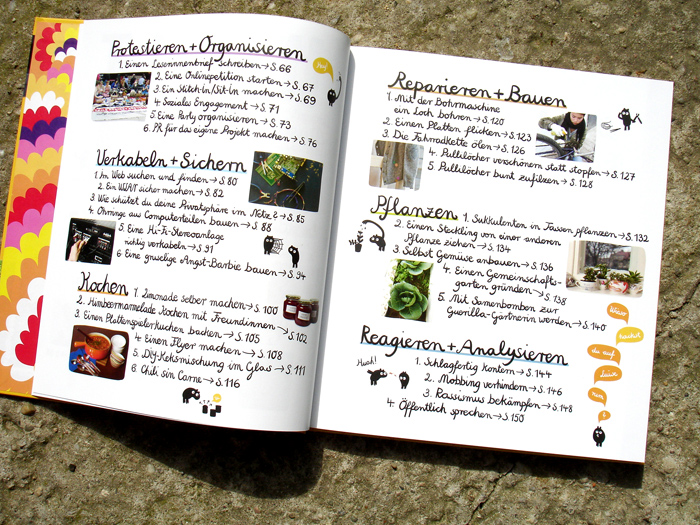 Protestieren + Organisieren
1. Einen Leserinnenbrief schreiben → S. 66
2. Eine Onlinepetition starten → S. 67
3. Ein Stitch-In/Sit-In machen → S. 69
4. Soziales Engagement → S. 71
5. Eine Party organisieren → S. 73
6. PR für das eigene Projekt machen → S. 76
Hey!
Verkabeln + Sichern
1. Im Web suchen und finden → S. 80
2. Ein WLAN sicher machen → S. 82
3. Wie schützt du deine Privatsphäre im Netz? → S. 85
4. Ohrringe aus Computerteilen bauen → S. 88
5. Eine Hi-Fi-Stereoanlage
richtig verkabeln → S. 91
6. Eine gruelige Angst-Barbie bauen → S. 94
Kochen
1. Limonade selber machen → S. 100
2. Himbeermarmelade Kochen mit Freundinnen → S. 102
3. Einen Plattenspielerkuchen backen → S. 105
4. Einen Flyer machen → S. 108
5. DIY-Keksmischung im Glas → S. 111
6. Chili sin Carne → S. 116
Reparieren + Bauen
1. Mit der Bohrmaschine
ein Loch bohren → S. 120
2. Einen Platten flicken → S. 123
3. Die Fahrradkette ölen → S. 126
4. Pullilöcher verschönern statt stopfen → S. 127
5. Pullilöcher bunt zufilzen → S. 128
Pflanzen
1. Sukkulenten in Tassen pflanzen → S. 132
2. Einen Steckling von einer anderen
Pflanze ziehen → S. 134
3. Selbst Gemüse anbauen → S. 136
4. Einen Gemeinschafts-
garten gründen → S. 138
5. Mit Samenbomben zur
Guerilla-Gärtnerin werden → S. 140
Reagieren + Analysieren
Huch!
1. Schlagfertig kontern → S. 144
2. Mobbing verhindern → S. 146
3. Rassismus bekämpfen → S. 148
4. Öffentlich sprechen → S. 150